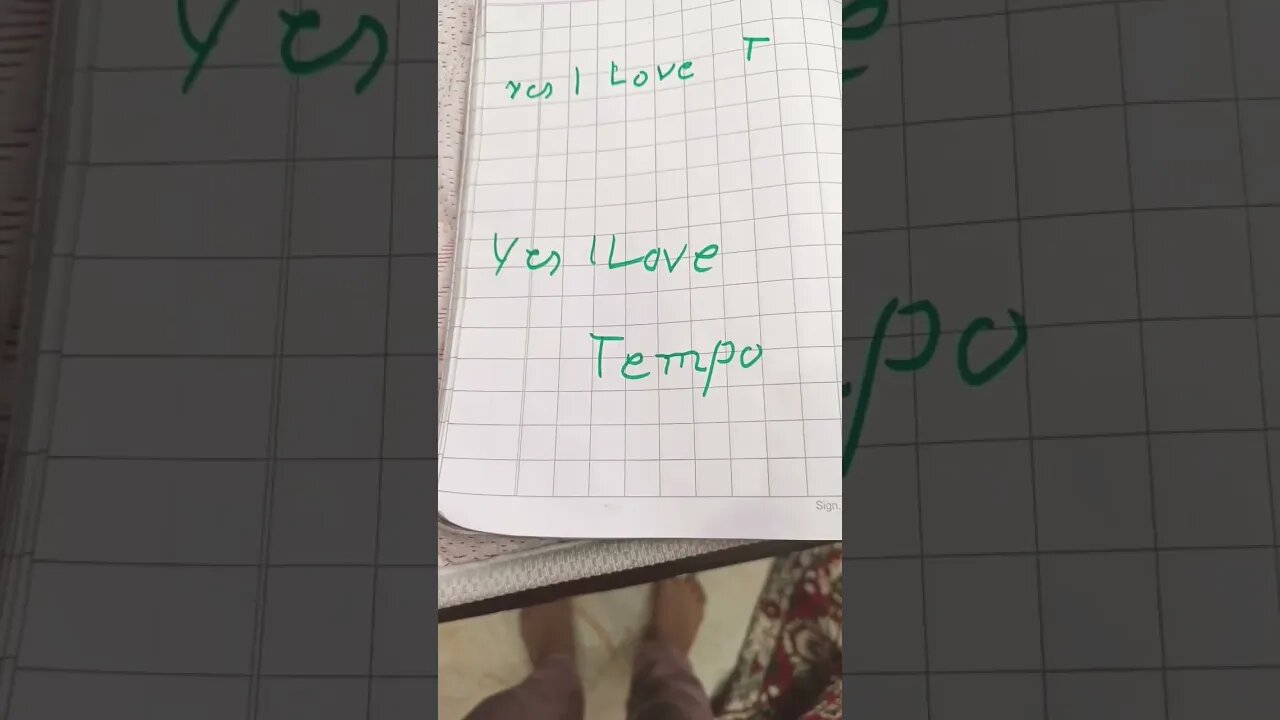 Yes I Love T
Yes I Love
Tempo
Sign.